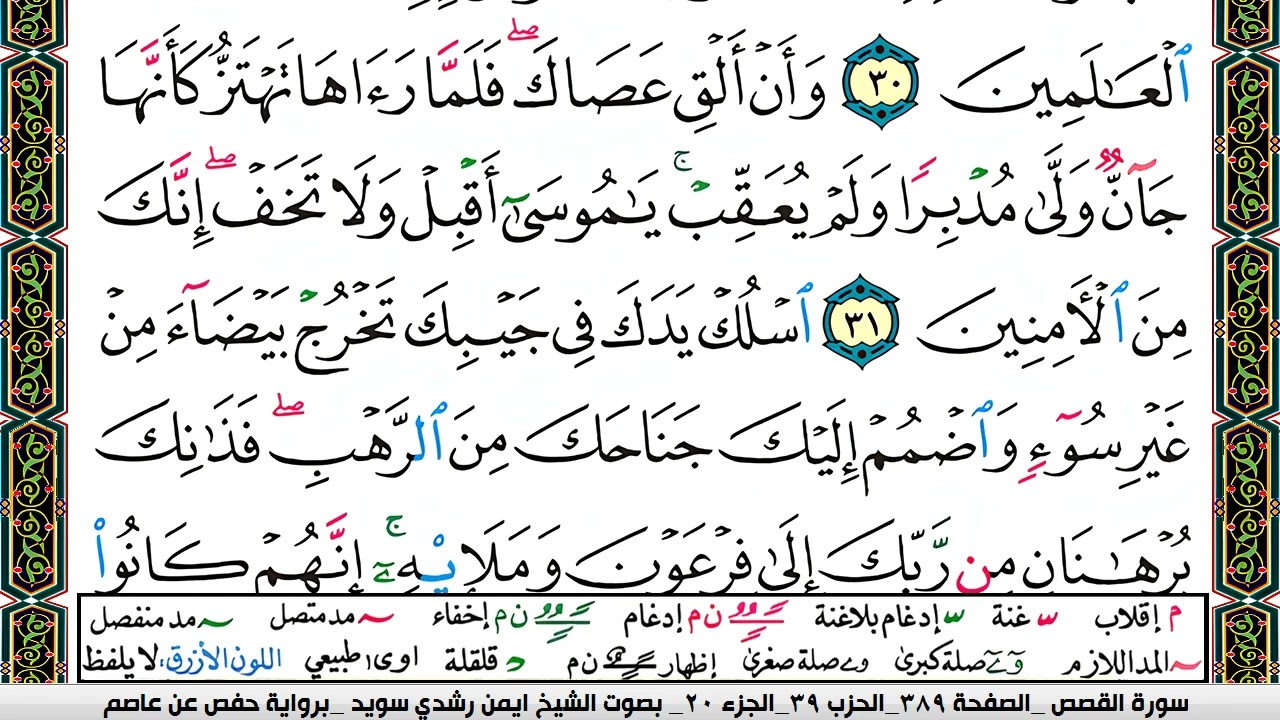 ٱلْعَـٰلَمِينَ ٣٠ وَأَنْ أَلْقِ عَصَاكَ ۖ فَلَمَّا رَءَاهَا تَهْتَزُّ كَأَنَّهَا
جَآنٌّ وَلَّىٰ مُدْبِرًا وَلَمْ يُعَقِّبْ ۚ يَـٰمُوسَىٰٓ أَقْبِلْ وَلَا تَخَفْ ۖ إِنَّكَ
مِنَ ٱلْأَمِنِينَ ٣١ ٱسْلُكْ يَدَكَ فِى جَيْبِكَ تَخْرُجْ بَيْضَآءَ مِنْ
غَيْرِ سُوٓءٍ وَٱضْمُمْ إِلَيْكَ جَنَاحَكَ مِنَ ٱلرَّهْبِ ۖ فَذَٰنِكَ
بُرْهَـٰنَانِ مِن رَّبِّكَ إِلَىٰ فِرْعَوْنَ وَمَلَإِي۟هِۦٓ ۚ إِنَّهُمْ كَانُوا۟
م إقلاب س غنة س إدغام بلاغنة ن م إدغام ن م إخفاء ~ مد متصل ~ مد منفصل
~ المد اللازم وۓ صلة كبرىٰ وے صلة صغرىٰ إظهار ن م د قلقلة اوى طبيعي اللون الأزرق، لا يلفظ
سورة القصص _الصفحة ٣٨٩_الحزب ٣٩_الجزء ٢٠_ بصوت الشيخ ايمن رشدي سويد _برواية حفص عن عاصم